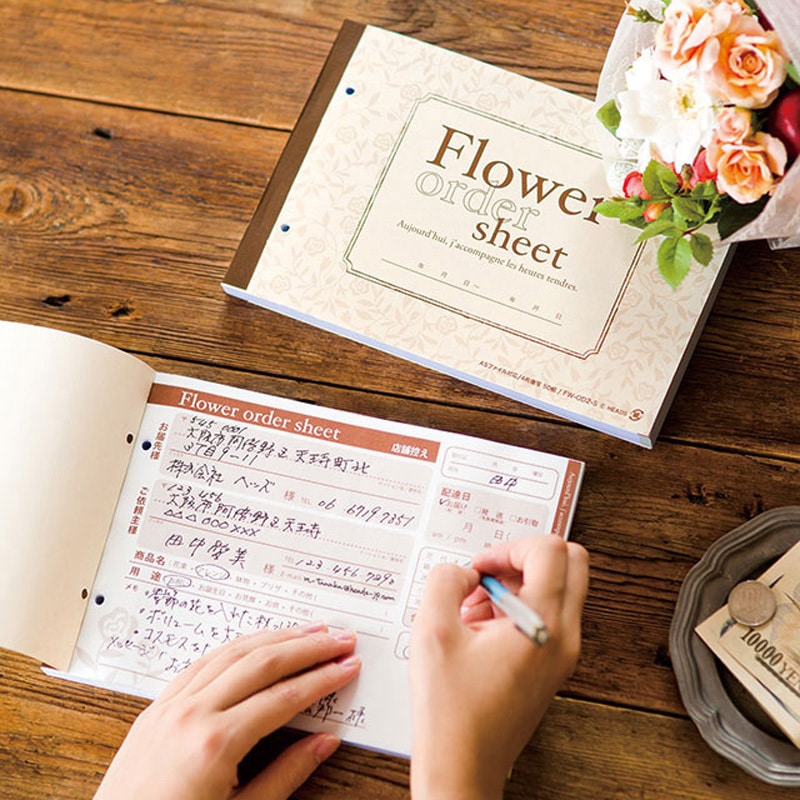 Flower
order
sheet
Aujourd'hui, j'accompagne les heures tendres.
年 月 日〜 年 月 日
A5ファイル対応/4枚複写 50組 / FW-OD2-S © HEADS
Flower order sheet
店舗控え
お届先様
〒545-0001
大阪市阿倍野区天王寺町北
3丁目9-11
株式会社 ヘッズ 様 TEL 06 6719 7351
ご依頼主様
〒123 456
大阪市阿倍野区天王寺
△△△ ○○○ ×××
田中 美 様
TEL 123 456 7890
E-mail
田中
配達日
お届け □発送 □お引取
月 日
am / pm
商品名 花束・ ・鉢物・プリザ・その他(
用途 お祝・お誕生日・お見舞・お供・その他(
メモ
・季節の花を入れた
・ボリュームを
・コスモスを
メッセージ
一様
Aujourd'hui, j'accom
10000 YEN